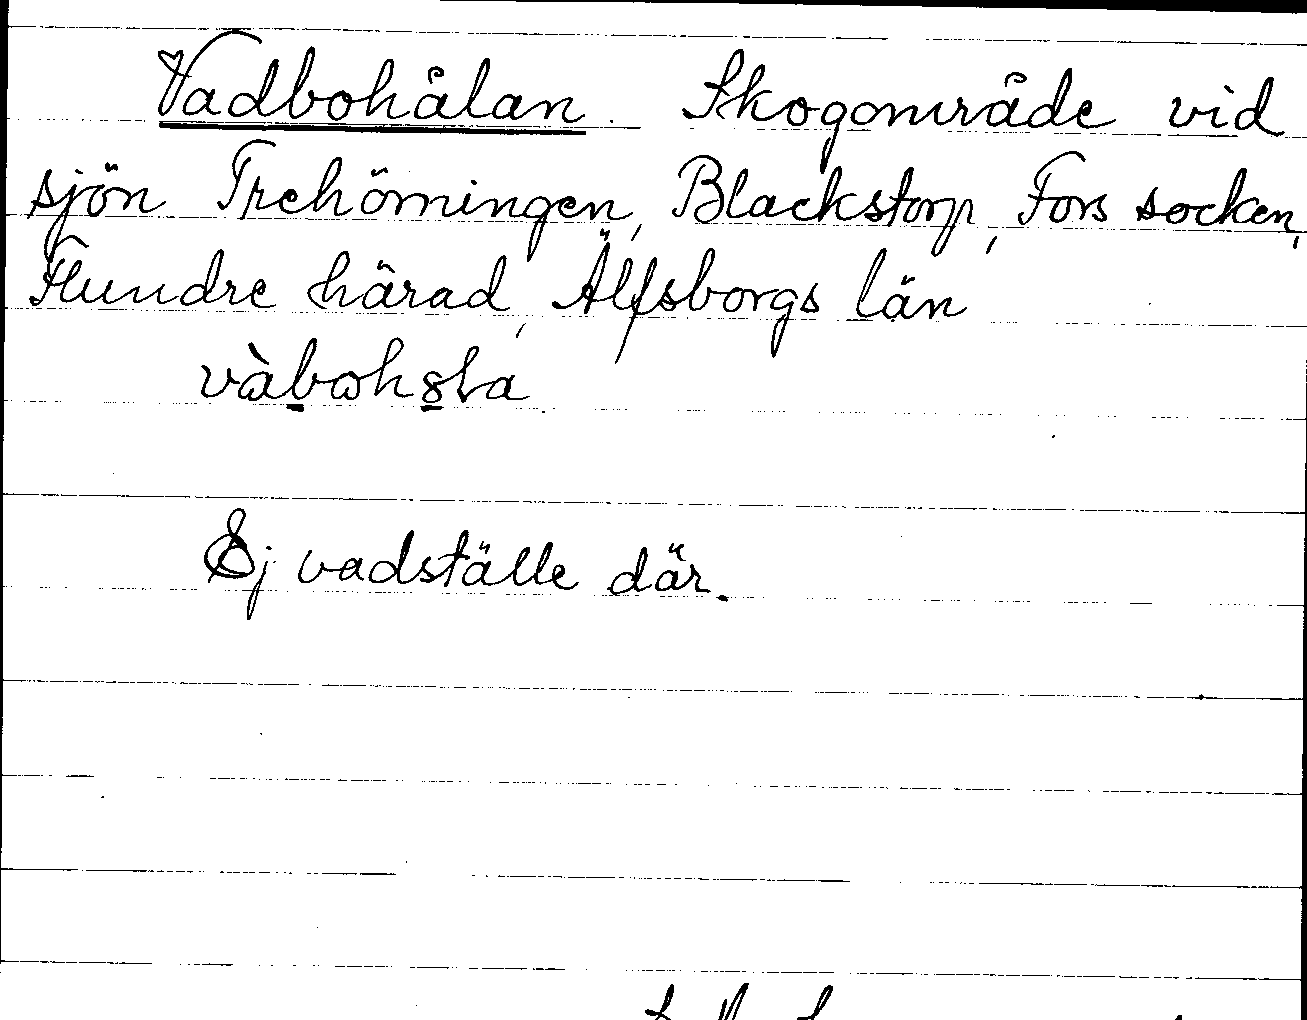 Vadbohålan. Skogområde vid
sjön Trehörningen, Blackstorp, Fors socken,
Flundre härad, Älfsborgs län
Ej vadställe där.